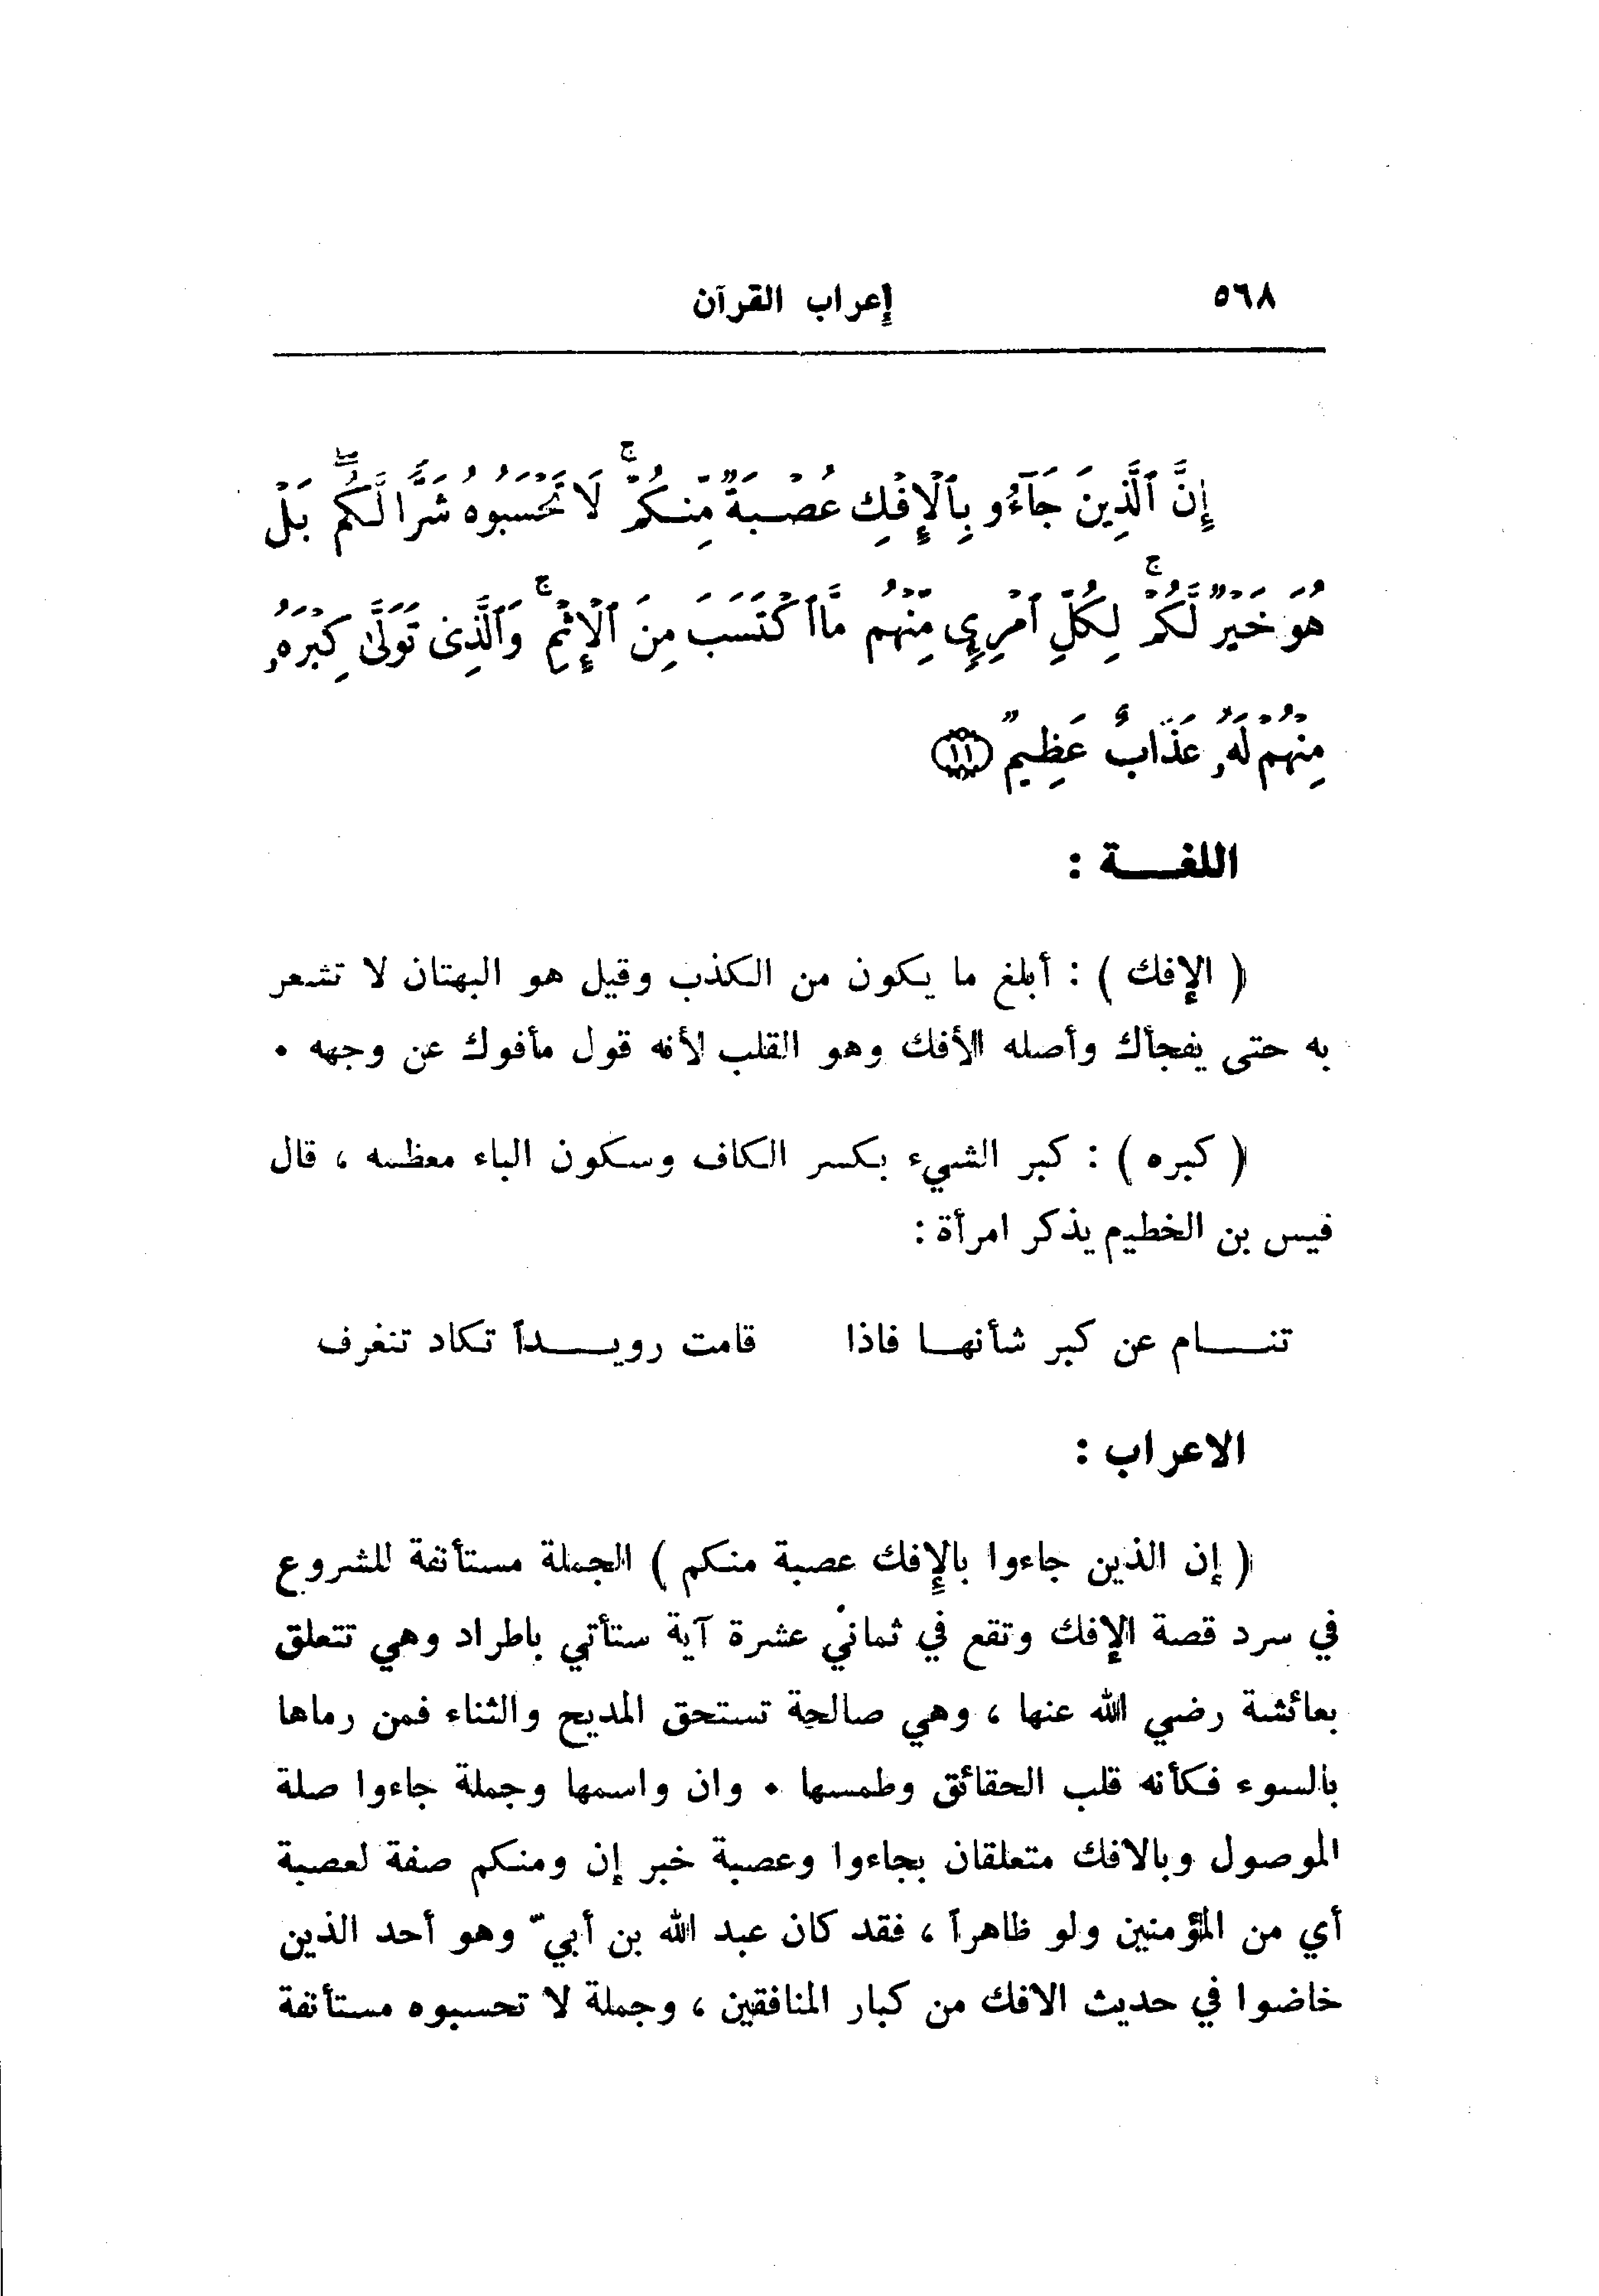 ٥٦٨ إعراب القرآن
إِنَّ ٱلَّذِينَ جَآءُو بِٱلْإِفْكِ عُصْبَةٌ مِّنكُمْ ۚ لَا تَحْسَبُوهُ شَرًّا لَّكُم ۖ بَلْ
هُوَ خَيْرٌ لَّكُمْ ۚ لِكُلِّ ٱمْرِئٍ مِّنْهُم مَّا ٱكْتَسَبَ مِنَ ٱلْإِثْمِ ۚ وَٱلَّذِى تَوَلَّىٰ كِبْرَهُۥ
مِنْهُمْ لَهُۥ عَذَابٌ عَظِيمٌ ﴿١١﴾
اللغـــة :
( الإفك ) : أبلغ ما يكون من الكذب وقيل هو البهتان لا تشعر
به حتى يفجأك وأصله الأفك وهو القلب لأنه قول مأفوك عن وجهه .
( كبره ) : كبر الشيء بكسر الكاف وسكون الباء معظمه ، قال
قيس بن الخطيم يذكر امرأة :
تنـــام عن كبر شأنهـا فاذا قامت رويـــداً تكاد تنغرف
الاعراب :
( إن الذين جاءوا بالإفك عصبة منكم ) الجملة مستأنفة للشروع
في سرد قصة الإفك وتقع في ثماني عشرة آية ستأتي باطراد وهي تتعلق
بعائشة رضي الله عنها ، وهي صالحة تستحق المديح والثناء فمن رماها
بالسوء فكأنه قلب الحقائق وطمسها . وان واسمها وجملة جاءوا صلة
الموصول وبالافك متعلقان بجاءوا وعصبة خبر إن ومنكم صفة لعصبة
أي من المؤمنين ولو ظاهراً ، فقد كان عبد الله بن أبيّ وهو أحد الذين
خاضوا في حديث الافك من كبار المنافقين ، وجملة لا تحسبوه مستأنفة